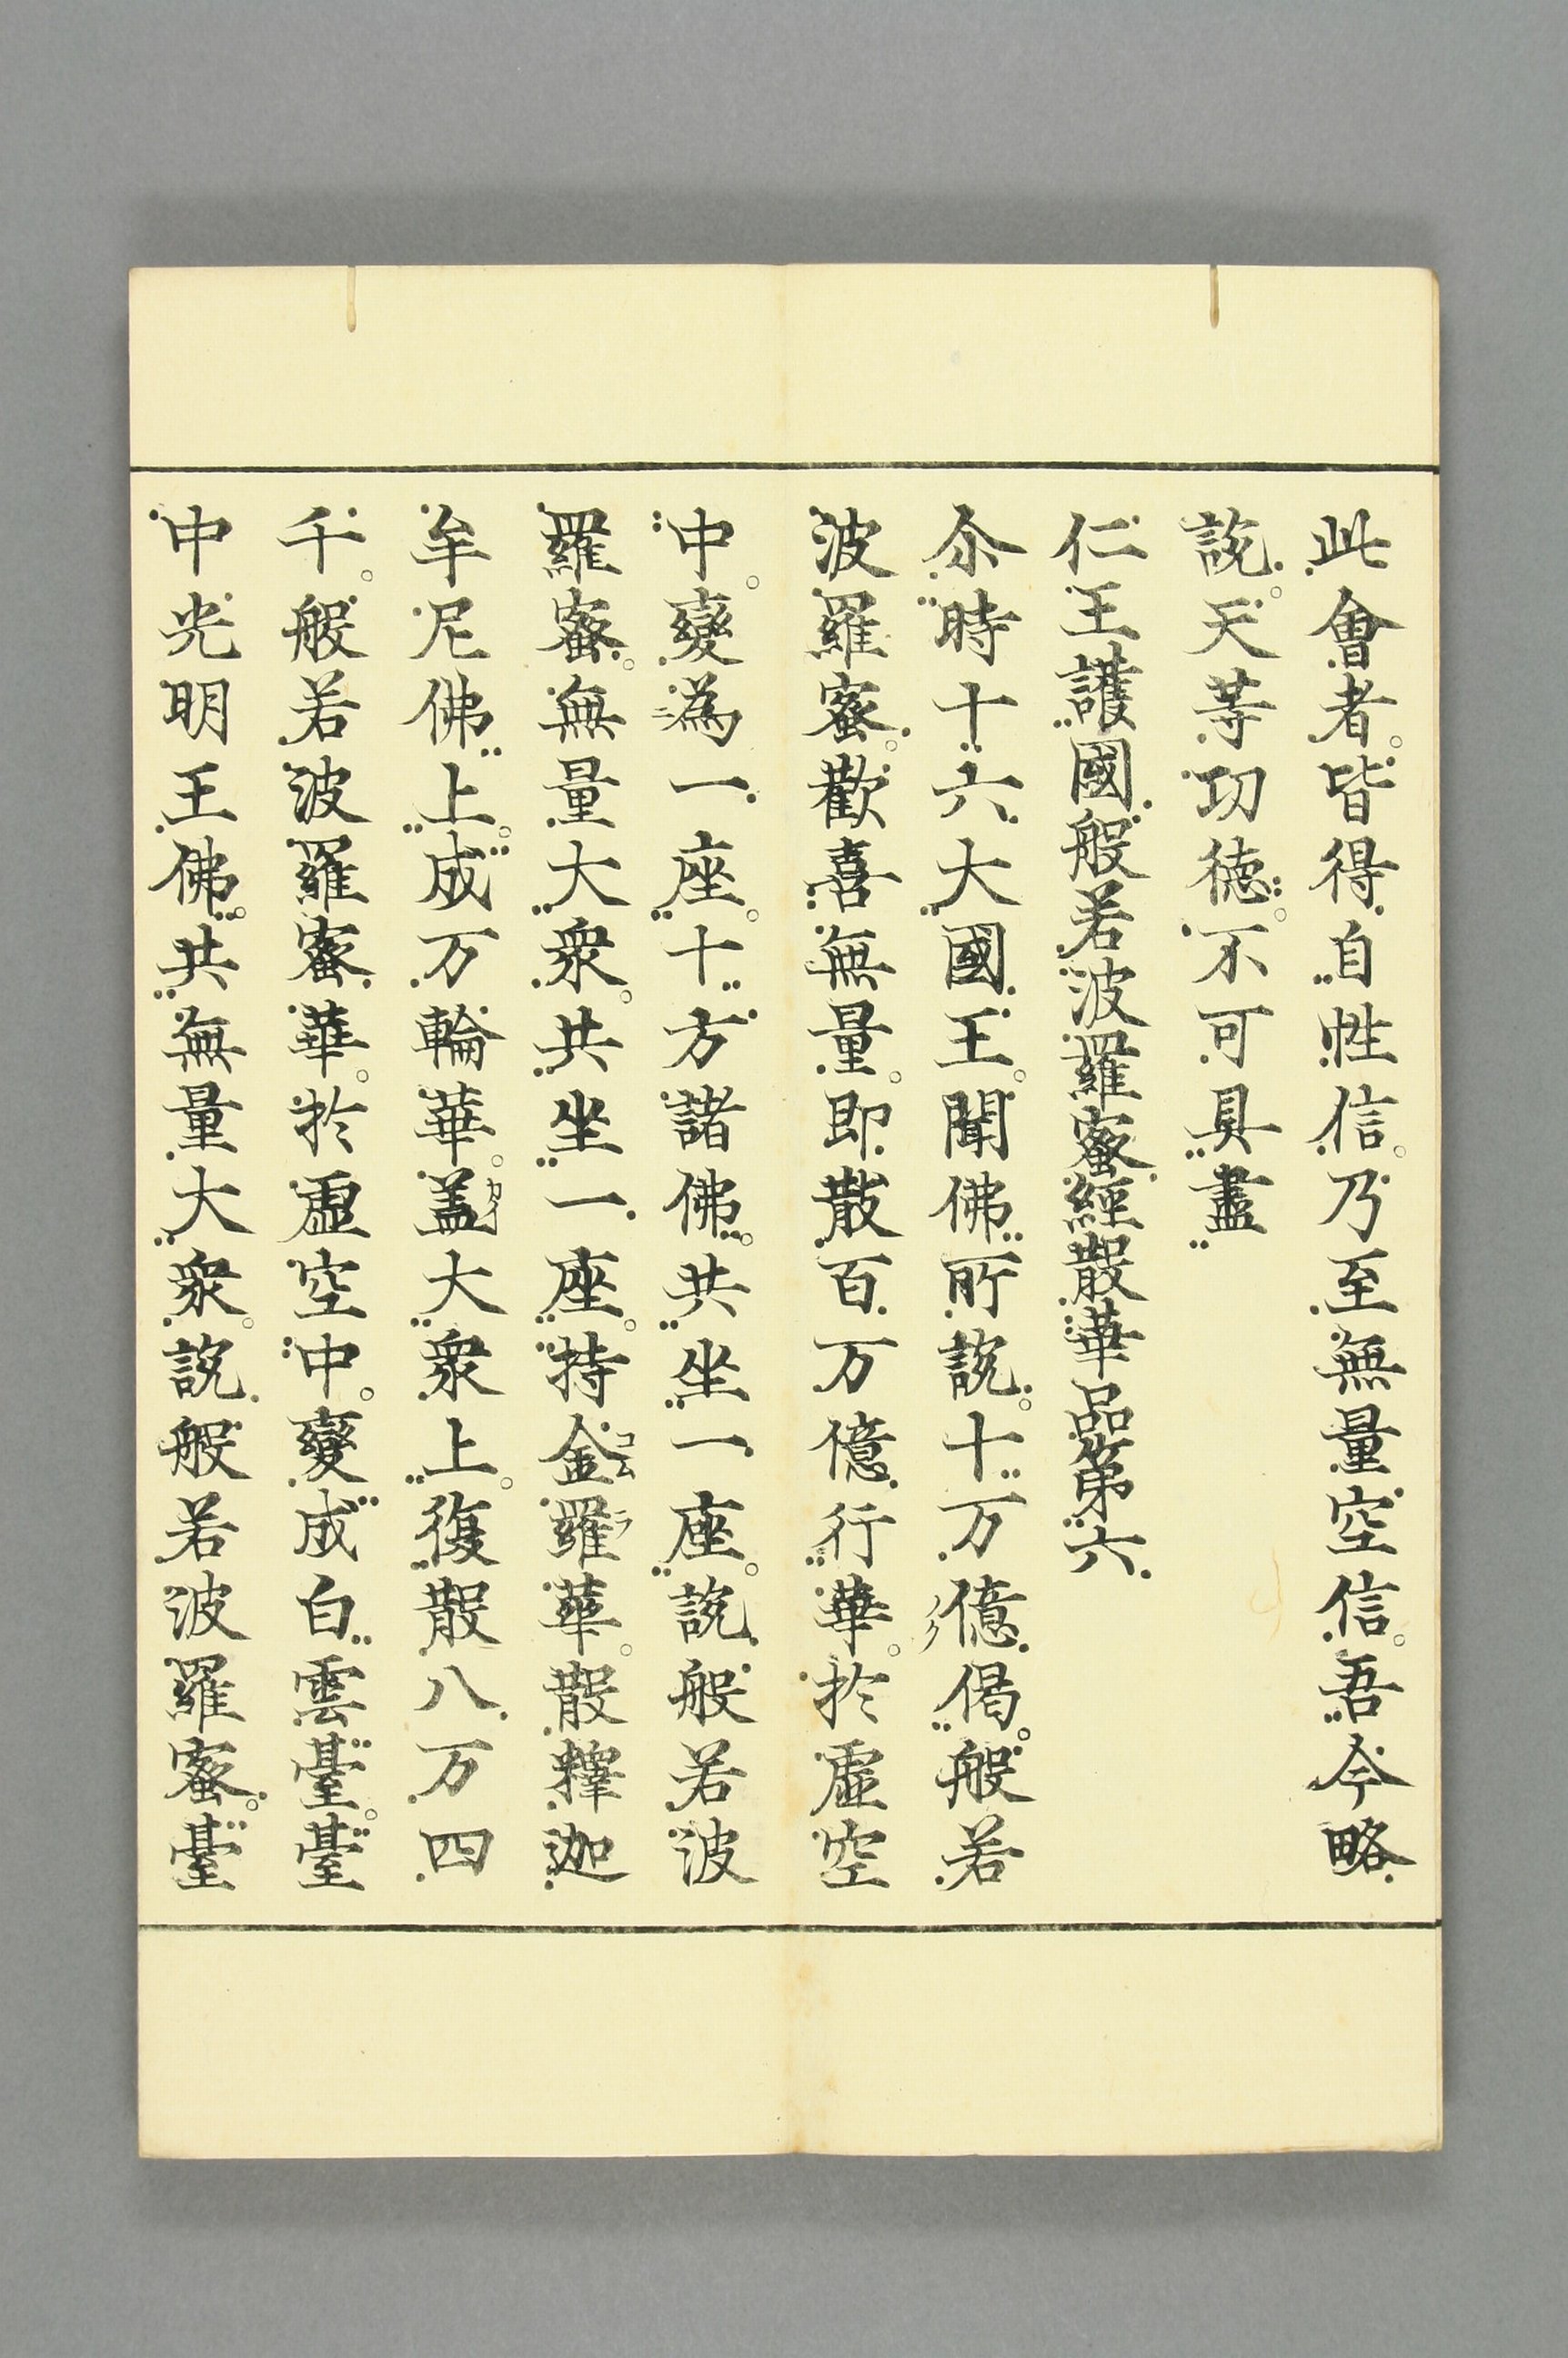 此會者皆得自性信乃至無量空信吾今略
說天等功徳不可具盡
仁王護國般若波羅蜜經散華品第六
尒時十六大國王聞佛所說十万億偈般若
波羅蜜歡喜無量即散百万億行華於虛空
中變為一座十方諸佛共坐一座說般若波
羅蜜無量大衆共坐一座持金羅華散釋迦
牟尼佛上成万輪華盖大衆上復散八万四
千般若波羅蜜華於虛空中變成白雲臺臺
中光明王佛共無量大衆說般若波羅蜜臺